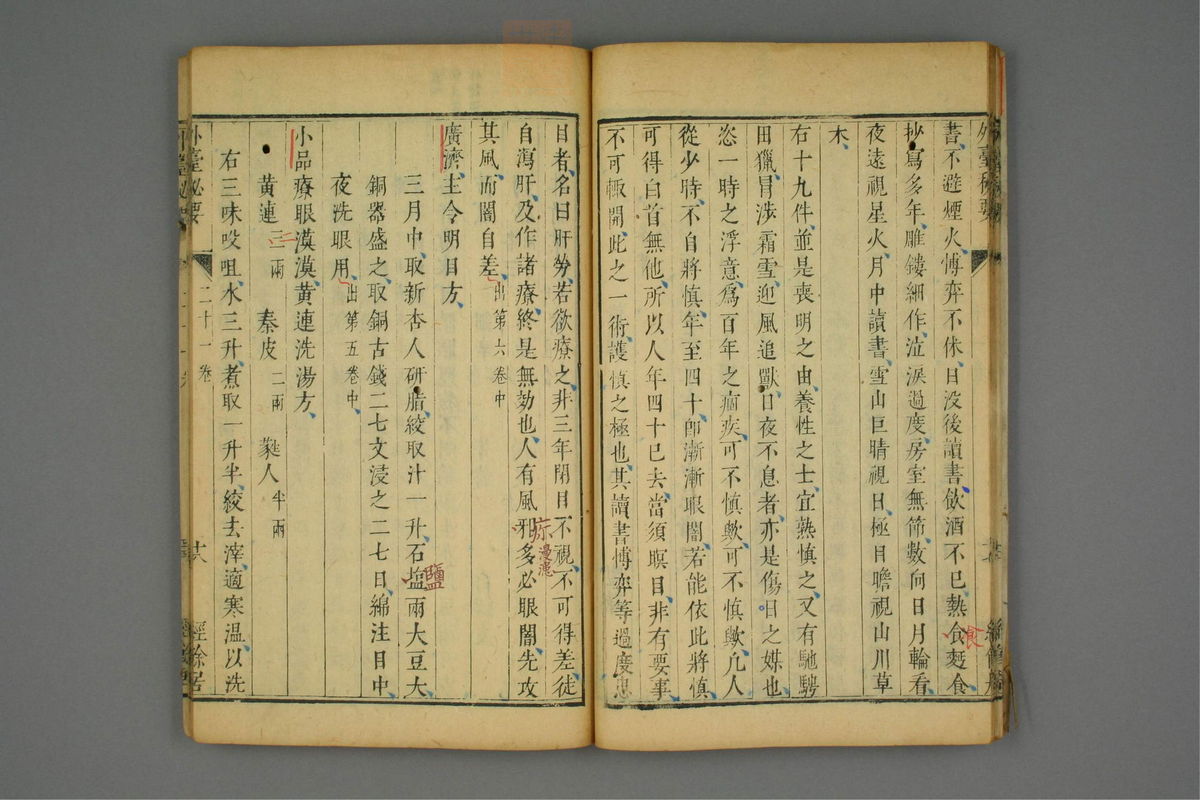 外臺秘要
書不避煙火博弈不休日没後讀書飲酒不已熱食麫食
抄寫多年雕鏤細作泣淚過度房室無節數向日月輪看
夜遠視星火月中讀書雪山巨睛視日極目瞻視山川草
木
右十九件並是喪明之由養性之士宜熟慎之又有馳騁
田獵冒涉霜雪迎風追獸日夜不息者亦是傷目之媒也
恣一時之浮意為百年之痼疾可不慎歟可不慎歟凡人
從少時不自將慎年至四十即漸漸眼闇若能依此將慎
可得白首無他所以人年四十已去當須瞑目非有要事
不可輒開此之一術護慎之極也其讀書博弈等過度患
目者名曰肝勞若欲療之非三年閉目不視不可得差徒
自瀉肝及作諸療終是無効也人有風邪多必眼闇先攻
其風而闇自差出第六卷中
廣濟主令明目方
三月中取新杏人研脂絞取汁一升石塩兩大豆大
銅器盛之取銅古錢二七文浸之二七日綿注目中
夜洗眼用出第五卷中
小品療眼漠漠黄連洗湯方
黄連三兩 秦皮二兩 蕤人半兩
右三味㕮咀水三升煮取一升半絞去滓適寒温以洗
外臺秘要 二十一卷 十六 經餘居
食
疹
漫漶
鹽